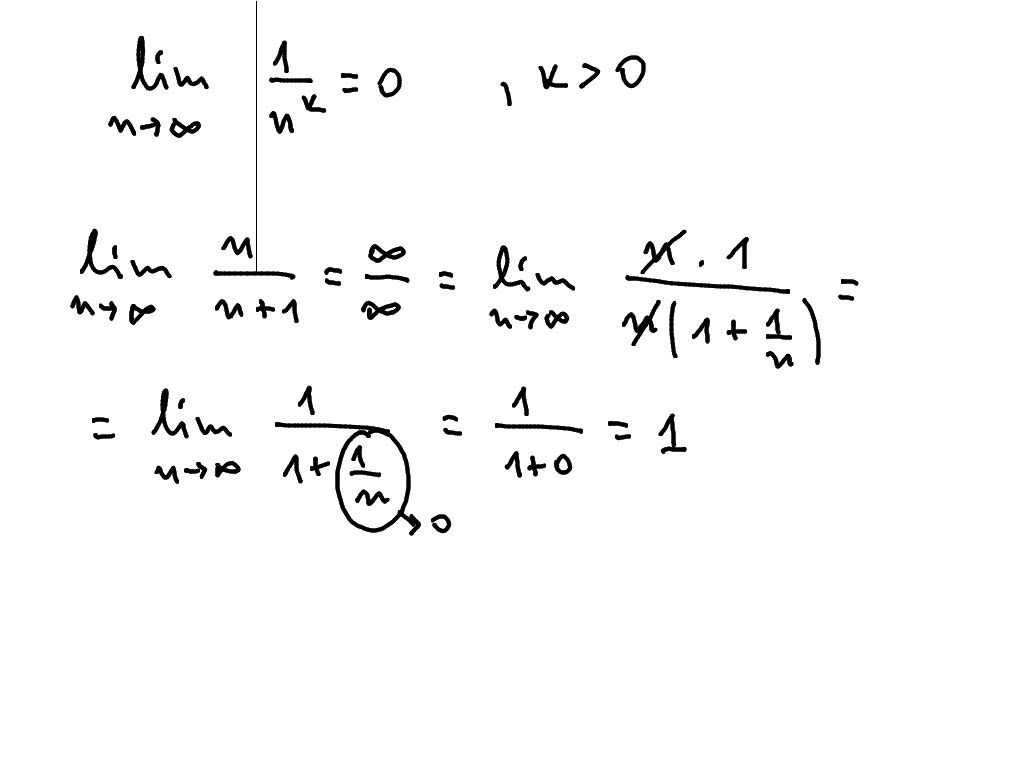 lim n→∞ 1/n^k = 0 , k > 0
lim n→∞ n/(n+1) = ∞/∞ = lim n→∞ (n · 1)/(n(1 + 1/n)) =
= lim n→∞ 1/(1 + 1/n) = 1/(1+0) = 1
→ 0